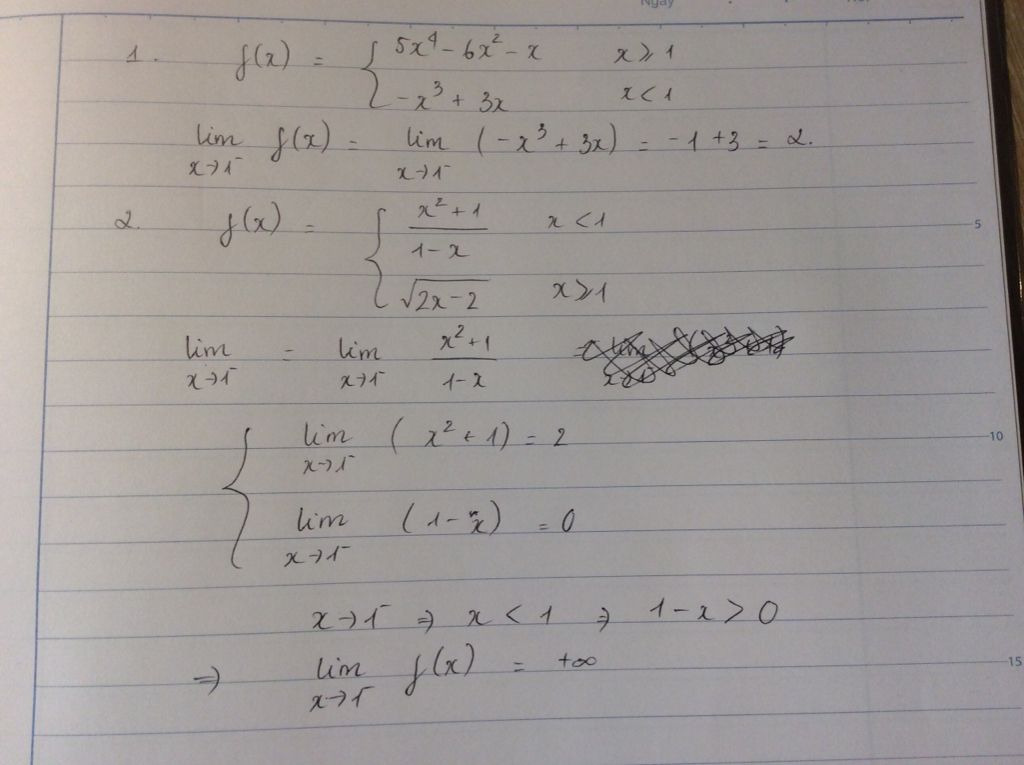 Ngày
1. f(x) = { 5x⁴ - 6x² - x x ⩾ 1
-x³ + 3x x < 1
lim x→1⁻ f(x) = lim x→1⁻ (-x³ + 3x) = -1 + 3 = 2.
2. f(x) = { (x² + 1)/(1 - x) x < 1
√(2x - 2) x ⩾ 1
5
lim x→1⁻ = lim x→1⁻ (x² + 1)/(1 - x)
{ lim x→1⁻ (x² + 1) = 2
10
lim x→1⁻ (1 - x) = 0
x→1⁻ ⇒ x < 1 ⇒ 1 - x > 0
⇒ lim x→1⁻ f(x) = +∞
15